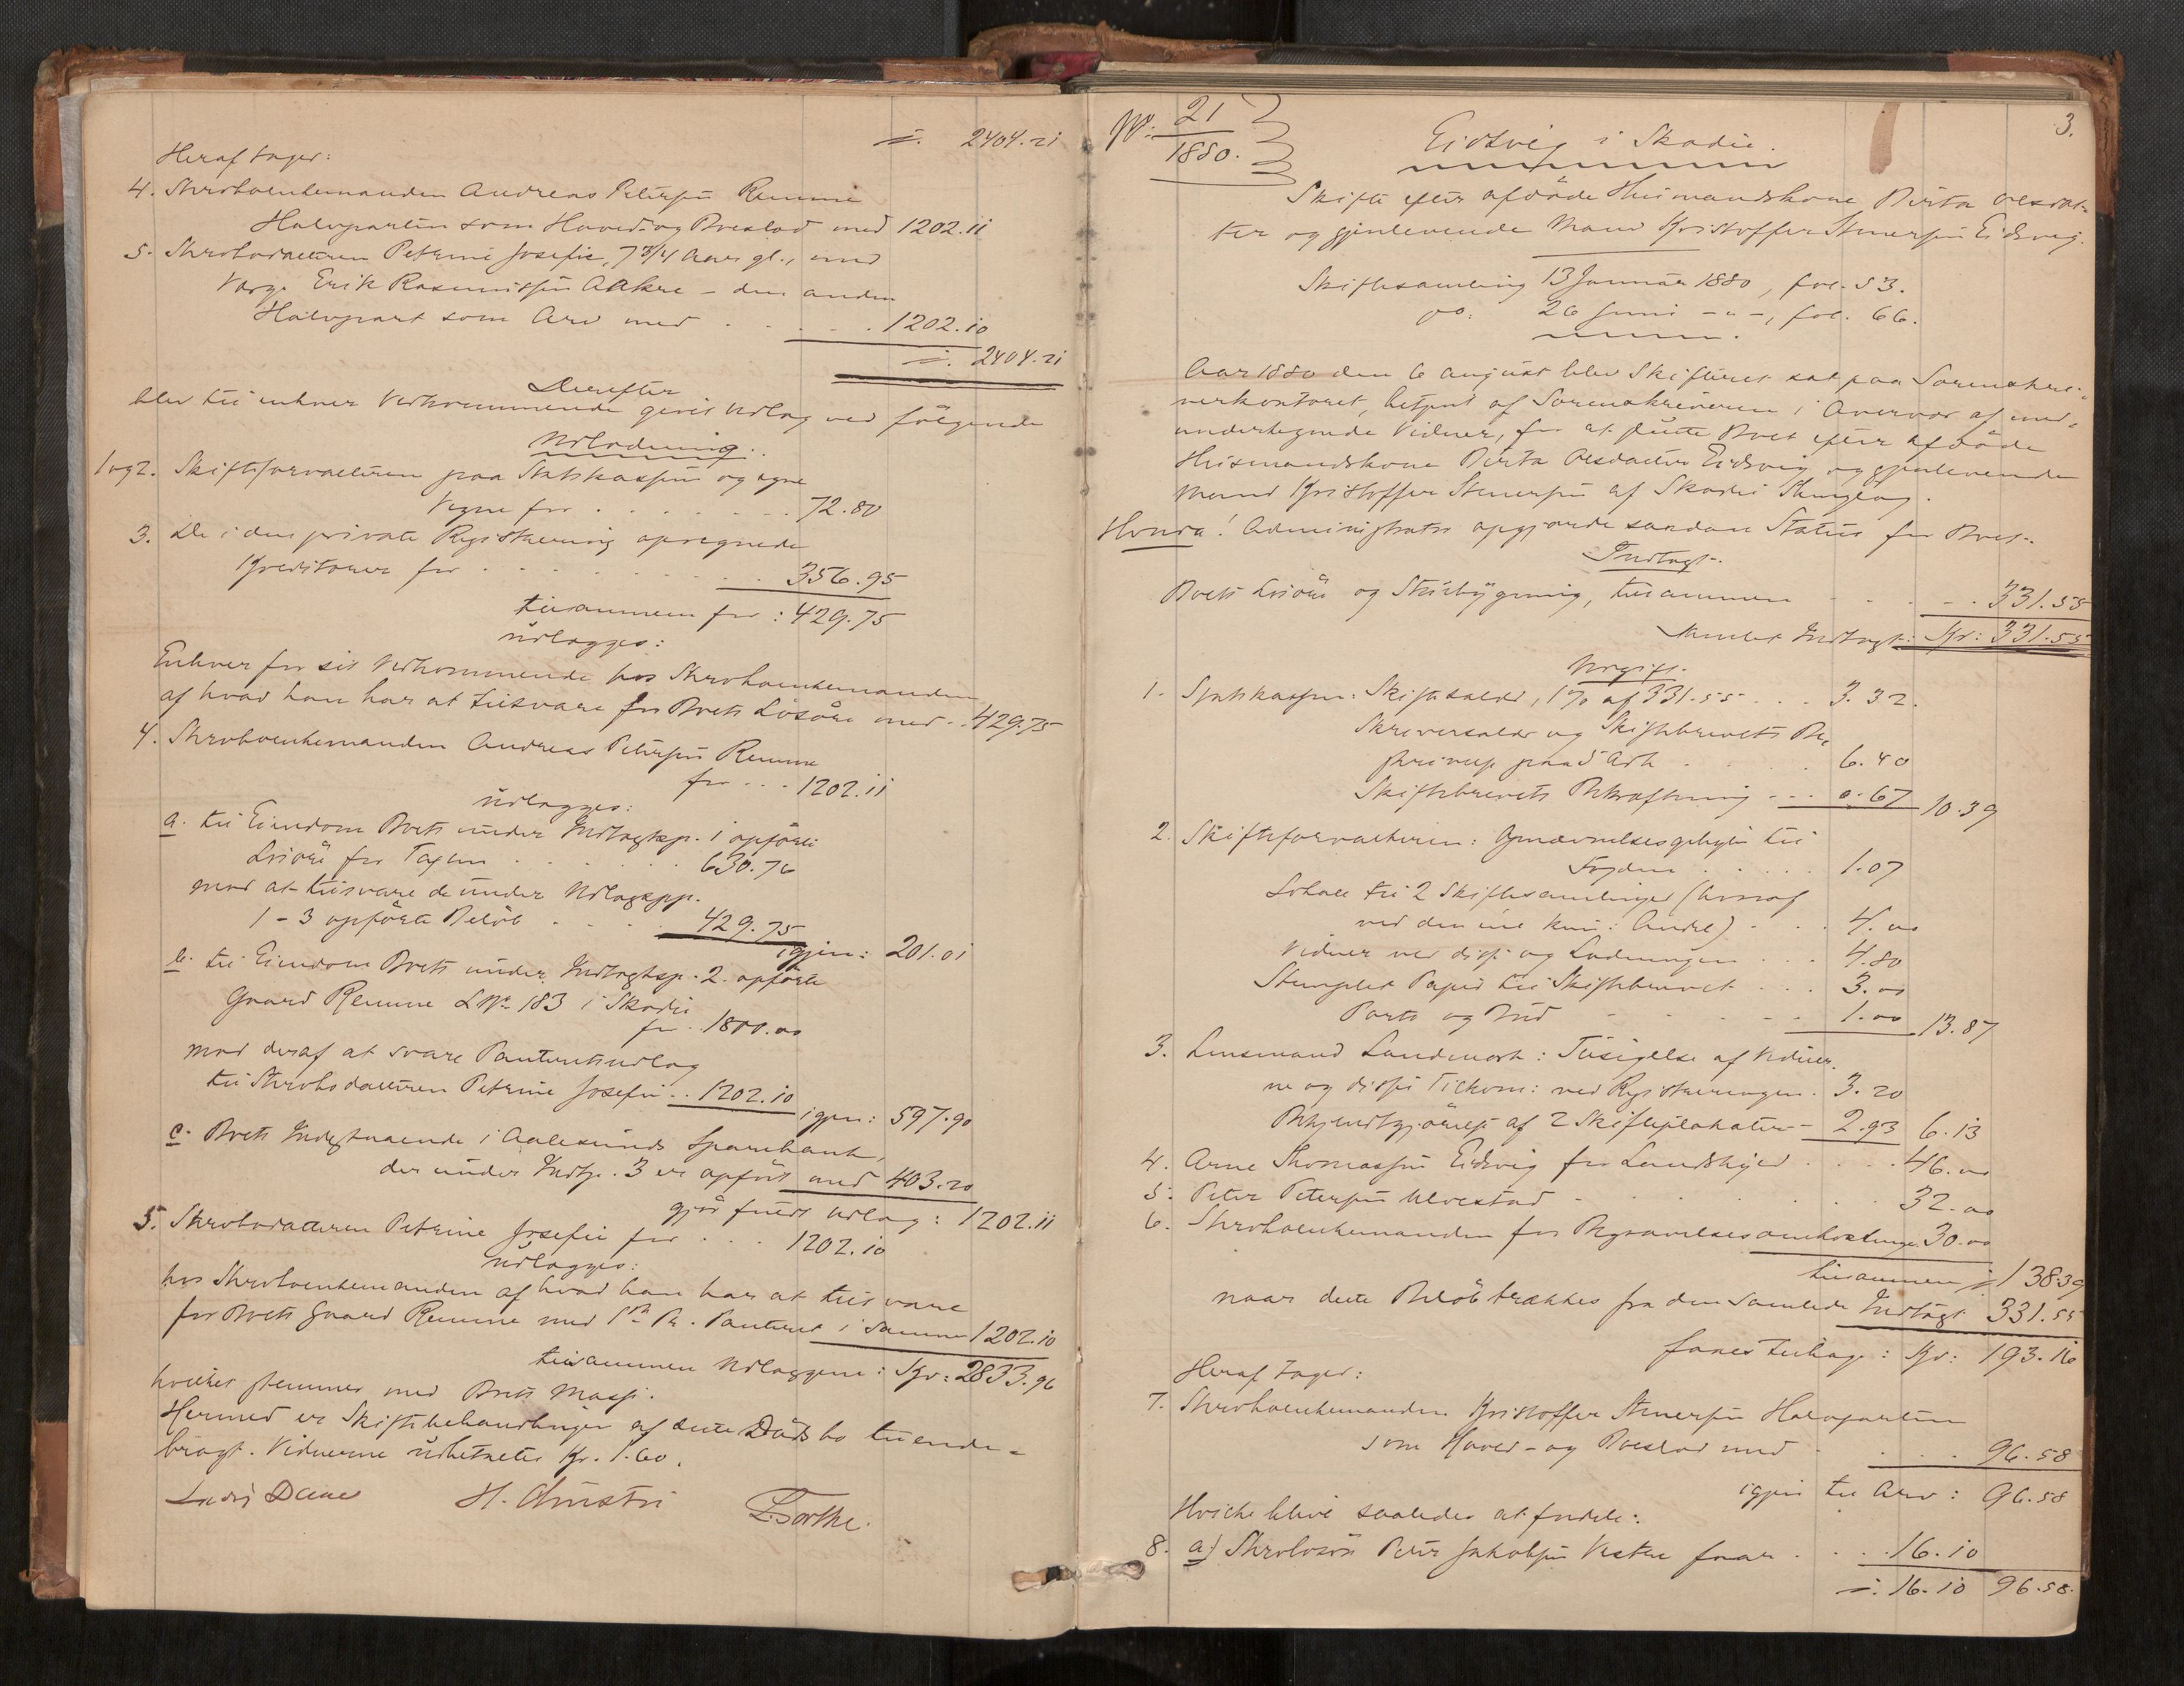 ÷ 2404.21
Heraf tager:
4. Skrboenkemanden Andreas Petersen Remme
Halvparten som Hoved- og Boeslod med 1202.11
5. Skrbodatteren Petrine Josefie, 7 3/4 Aar gl., med
Værge Erik Rasmussen Aakre – den anden
Halvpart som Arv med . . . . 1202.10
÷ 2404.21
Derefter
blev til enhver Vedkommende gjort Udlæg ved følgende
Udlodning.
1 og 2. Skifteforvalteren paa Statskassens og egne
Vegne for . . . . . . . 72.80
3. De i den private Registrering opregnede
Kreditorer for . . . . . . 356.95
tilsammen for: 429.75
udlægges:
Enhver for sit Vedkommende hos Skrboenkemanden
af hvad han har at tilsvare for Boets Løsøre med . . 429.75
4. Skrboenkemanden Andreas Petersen Remme
for . . . 1202.11
udlægges:
a. til Eiendom Boets under Indtægtsp. 1 opførte
Løsøre for Taxten . . . . . 630.76
mod at tilsvare de under Udlægspp.
1–3 opførte Beløb . . . . 429.75
igjen: 201.01
b. til Eiendom Boets under Indtægtsp. 2. opførte
Gaard Remme L.No 183 i Skodje
for . 1800.00
mod deraf at svare Panteretsudlæg
til Skrbodatteren Petrine Josefie . . 1202.10
igjen: 597.90
c. Boets Indestaaende i Aalesunds Sparebank,
der under Indtp. 3 er opført med 403.20
gjør fuldt Udlæg: 1202.11
5. Skrbodatteren Petrine Josefie for . . . 1202.10
udlægges:
hos Skrboenkemanden af hvad han har at tilsvare
for Boets Gaard Remme med 1ste Pr. Panteret i samme 1202.10
tilsammen Udlæggene: Kr: 2833.96
hvilket stemmer med Boets Masse.
Hermed er Skiftebehandlingen af dette Dødsbo tilende-
bragt. Vidnerne udbetaltes Kr. 1.60.
H. Christie
3.
No: 21
1880.
Eidsvig i Skodje.
Skifte efter afdøde Husmandskone Berta Olesdat-
ter og gjenlevende Mand Kristoffer Stenersen Eidsvig.
Skiftesamling 13 Januar 1880, fol. 53.
do: 26 Juni – " –, fol. 66.
Aar 1880 den 6 August blev Skifteret sat paa Sorenskri-
verkontoret, betjent af Sorenskriveren i Overvær af med-
undertegnede Vidner, for at slutte Boet efter afdøde
Husmandskone Berta Olesdatter Eidsvig og gjenlevende
Mand Kristoffer Stenersen af Skodje Thinglag.
Hvorda! Administrator opgjorde saadan Status for Boet.
Indtægt.
Boets Løsøre og Stuebygning, tilsammen . . . . 331.55
Samlet Indtægt: Kr: 331.55
Udgift.
1. Statskassen: Skiftesalær, 1% af 331.55 . . . 3.32.
Skriversalær og Skiftebrevets Be-
skrivelse paa 5 Ark . . . . . 6.40
Skiftebrevets Bekræftning . . . 0.67 10.39
2. Skifteforvalteren: Opnævnelsesgebyr til
Fogden . . . . . 1.07
Lokale til 2 Skiftesamlinger (hvoraf
ved den ene kun: Andel) . . . 4.00
Vidner ved disse og Lodningen . . . 4.80
Stemplet Papir til Skiftebrevet . . . 3.00
Porto og Bud . . . . . 1.00 13.87
3. Lensmand Landmark: Tilsigelse af Vidner-
ne og disses Tilkom: ved Registreringen. 3.20
Bekjendtgjørelse af 2 Skifteplakater – 2.93 6.13
4. Arne Thomassen Eidsvig for Landskyld . . . . 46.00
5. Peter Petersen Ulvestad . . . . . . . 32.00
6. Skrboenkemanden for Begravelsesomkostninger 30.00
tilsammen ÷ 138.39
naar dette Beløb trækkes fra den samlede Indtægt 331.55
faaes tilbage: Kr: 193.16
Heraf tager:
7. Skrboenkemanden Kristoffer Stenersen Halvparten
som Hoved- og Boeslod med . . . . 96.58
igjen til Arv: 96.58
Hvilke blive saaledes at fordele:
8. a) Skrboesøn Peter Jakobsen Vestre faar . . . 16.10
÷ 16.10 96.58.